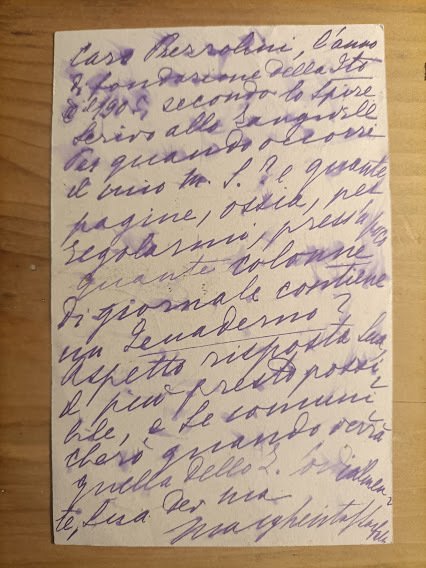 Caro Prezzolini, l'anno
di fondazione della Ito
è il 1905, secondo lo
Scrivo allo Zangwill
Per quando occorri
il mio M. S.? e quante
pagine, ossia, per
regolarmi, press'a poco
quante colonne
di giornale contiene
un Quaderno?
Aspetto risposta Sua
il più presto possi-
bile, e Le comuni-
cherò quando verrà
quella dello Z. Cordialmen-
te, Sua Dev.ma
Margherita